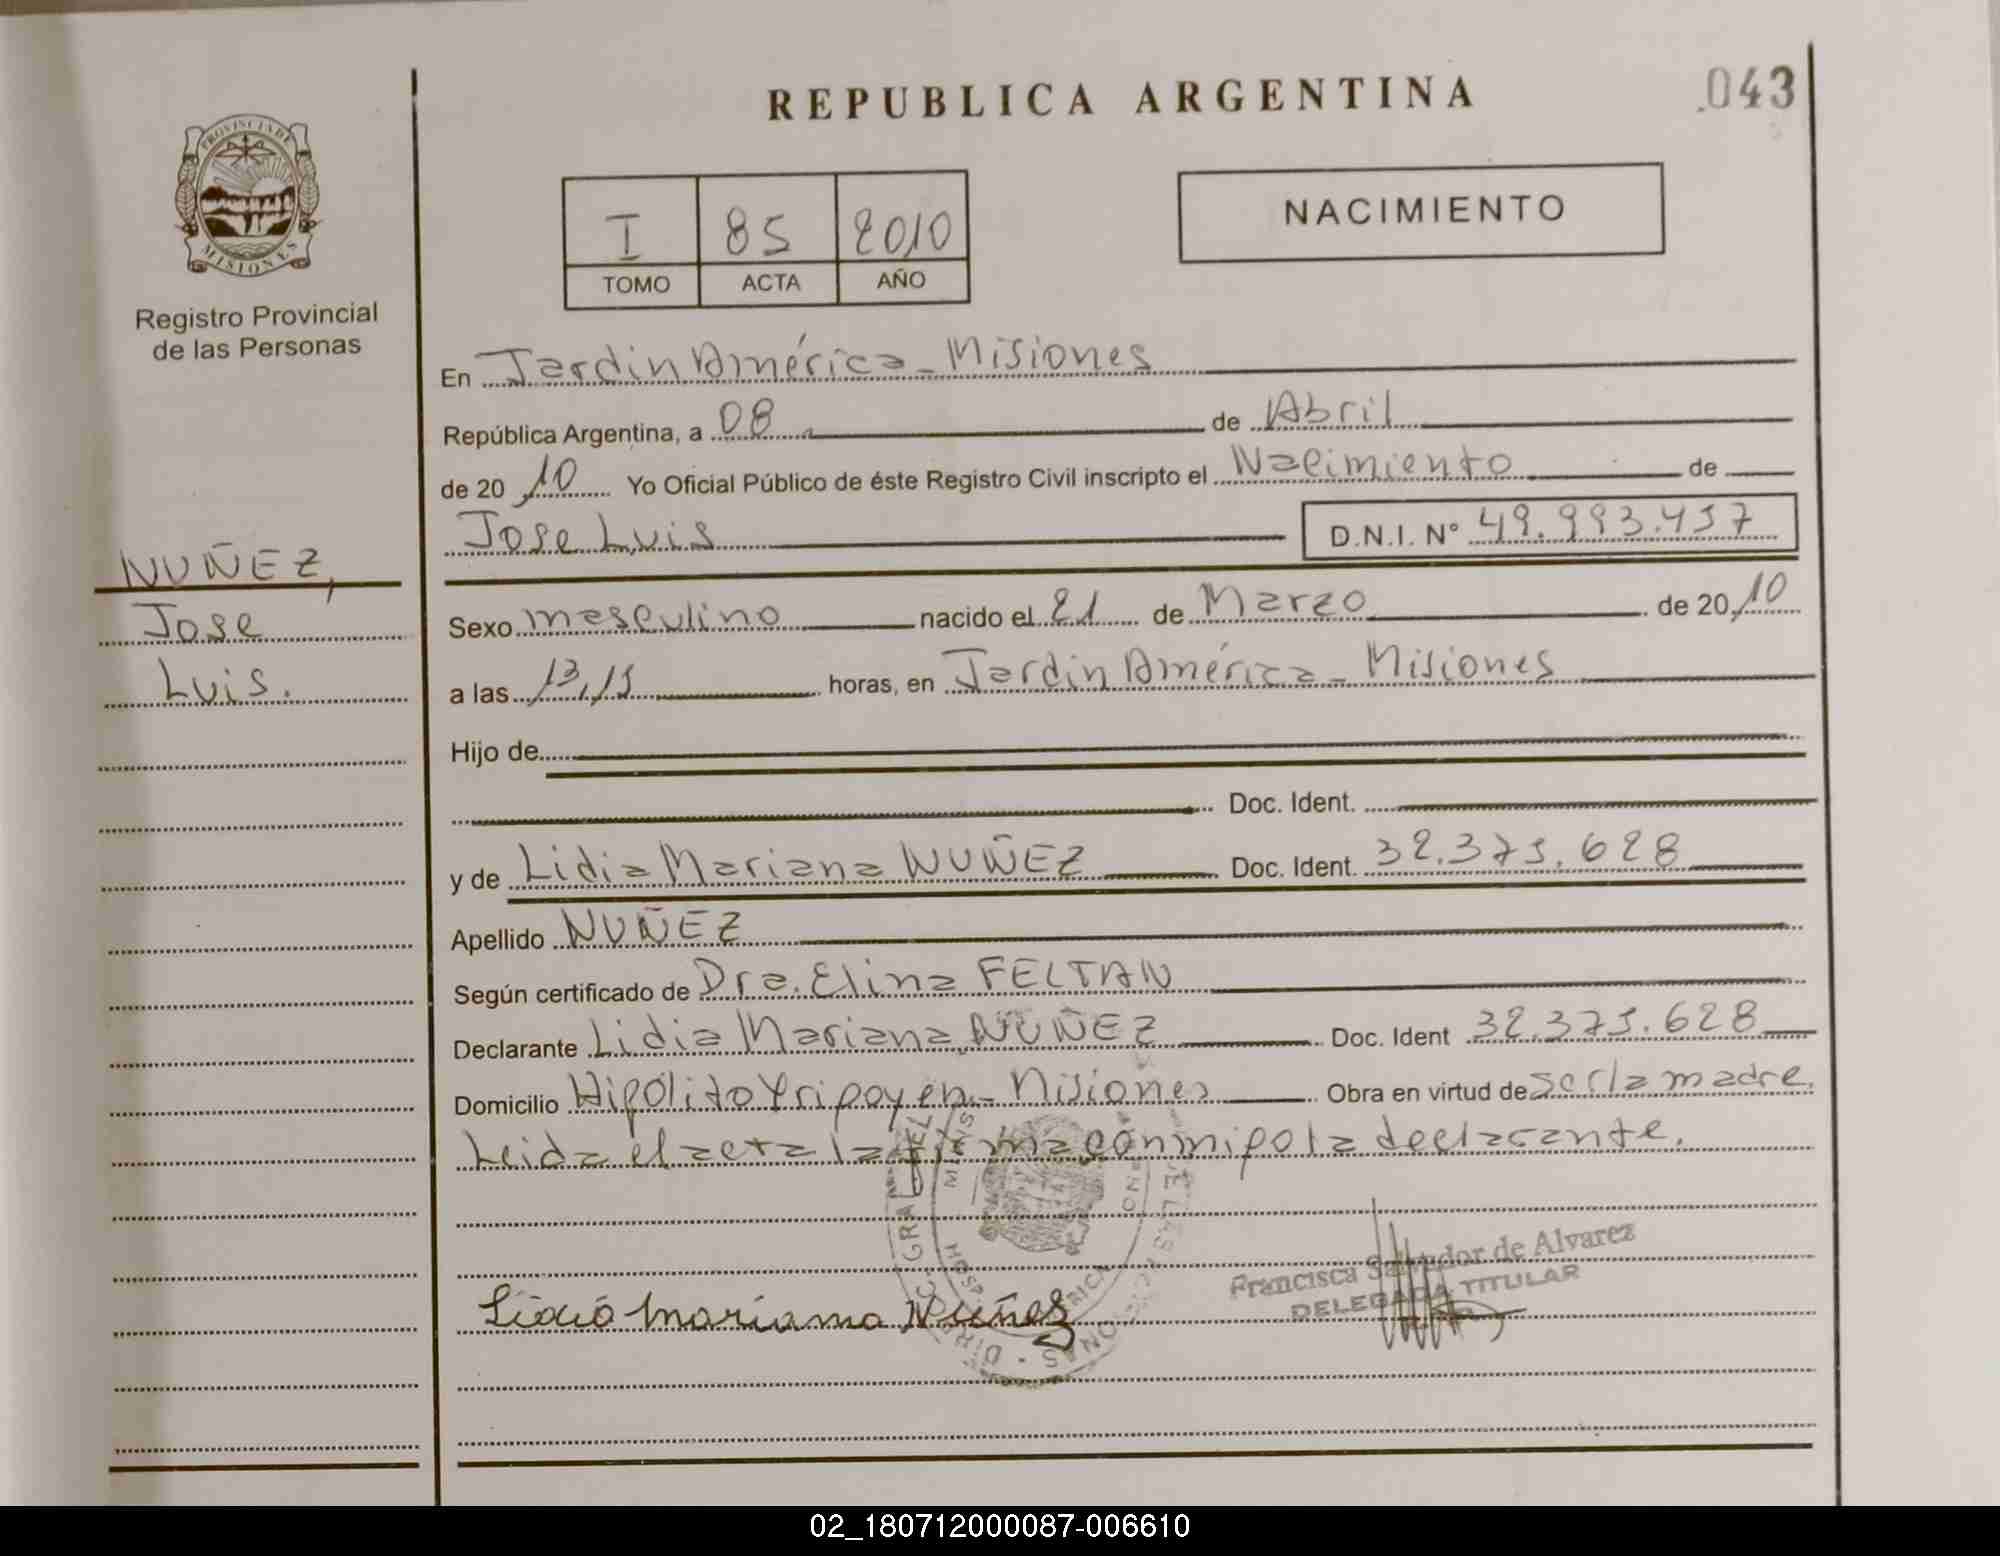 REPUBLICA ARGENTINA
.043
PROVINCIA DE
MISIONES
Registro Provincial
de las Personas
I 85 2010
TOMO ACTA AÑO
NACIMIENTO
En Jardin América - Misiones
República Argentina, a 08 de Abril
de 20 10 Yo Oficial Público de éste Registro Civil inscripto el Nacimiento de
Jose Luis D.N.I. Nº 49.993.457
NUÑEZ,
Jose
Luis.
Sexo masculino nacido el 21 de Marzo de 20 10
a las 13,15 horas, en Jardin América - Misiones
Hijo de
Doc. Ident.
y de Lidia Mariana NUÑEZ Doc. Ident. 32.375.628
Apellido NUÑEZ
Según certificado de Dra. Elina FELTAN
Declarante Lidia Mariana NUÑEZ Doc. Ident 32.375.628
Domicilio Hipólito Yripoyen - Misiones Obra en virtud de ser la madre.
Leida el acta la firma con mi po la declarante.
Francisca Salvador de Alvarez
DELEGADA TITULAR
Lidia Mariana Nuñez
02_180712000087-006610